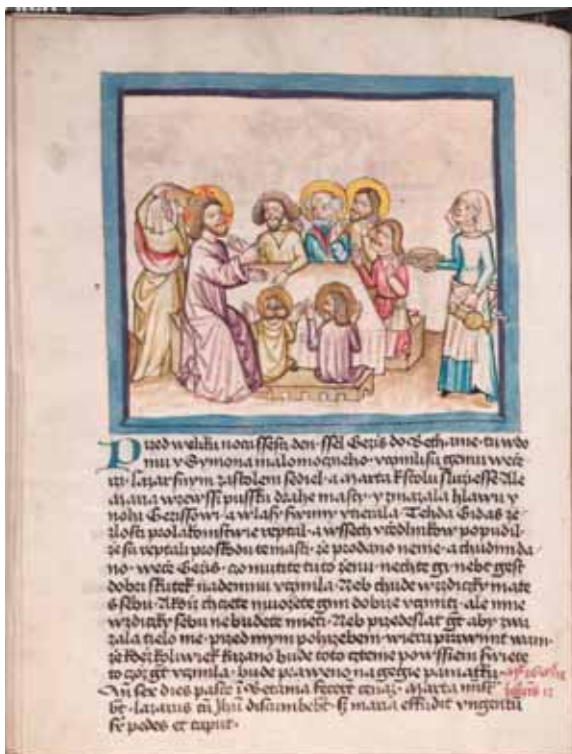 Pred weliku noci ssesty den ssel Gezis do Bethanie tu w do
mu v Symona malomocneho vczinili su gemu wecze
rzi lazar s nym za stolem sediel a marta k stolu sluziesse Ale
maria wzewssi pussku drahe masti y zmazala hlawu y
nohi Gezissowi a wlasy swymi vtierala Tehda Gidas ze
zlosti pro lakomstwie reptal a wssech vczedlnikow popudil
ze su reptali pro skodu te masti ze prodano neme a chudim da
no wecze Gezis czo mutite tuto zenu nechte gi nebt gest
dobri skutek nade mnu vczinila Neb chude wzdiczky mate
s sebu Akdiz chczete muozete gim dobrze vcziniti ale mne
wzdiczky s sebu ne budete mieti Neb przedeslat gt aby zma
zala tielo me przed mym pohrzebem wieru prawimt wam
ze kdez koliwiek kazano bude toto cztenie po wssiem swiete
to czoz gt vczinila bude praweno na gegie pamatku
An sex dies pasce i Betania fecert cenam Marta mist
bt lazarus cu Jhu discumbebt s maria effudit vngentu
sr pedes et caput